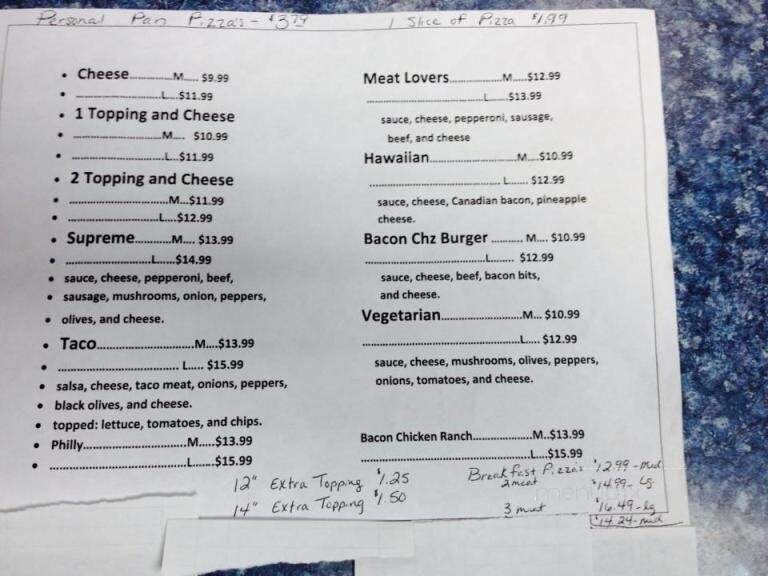 Personal Pan Pizza's - $3.79
1 Slice of Pizza $1.99
• Cheese..............M..... $9.99
• ............................L...$11.99
• 1 Topping and Cheese
• .........................M.... $10.99
• .........................L...$11.99
• 2 Topping and Cheese
• ...........................M...$11.99
• .........................L....$12.99
• Supreme............M.... $13.99
• ........................L......$14.99
• sauce, cheese, pepperoni, beef,
• sausage, mushrooms, onion, peppers,
• olives, and cheese.
• Taco...........................M....$13.99
• ................................... L..... $15.99
• salsa, cheese, taco meat, onions, peppers,
• black olives, and cheese.
• topped: lettuce, tomatoes, and chips.
• Philly.............................M.....$13.99
• ......................................L......$15.99
Meat Lovers................M.....$12.99
....................................L......$13.99
sauce, cheese, pepperoni, sausage,
beef, and cheese
Hawaiian........................M...$10.99
...................................... L...... $12.99
sauce, cheese, Canadian bacon, pineapple
cheese.
Bacon Chz Burger .......... M.... $10.99
...................................L........ $12.99
sauce, cheese, beef, bacon bits,
and cheese.
Vegetarian.........................M... $10.99
..............................................L.... $12.99
sauce, cheese, mushrooms, olives, peppers,
onions, tomatoes, and cheese.
Bacon Chicken Ranch..................M..$13.99
...............................................L....$15.99
12" Extra Topping $1.25
14" Extra Topping $1.50
Breakfast Pizza's $12.99 - med
2 meat $14.99 - Lg
3 meat $16.49 - lg
$14.24 - med